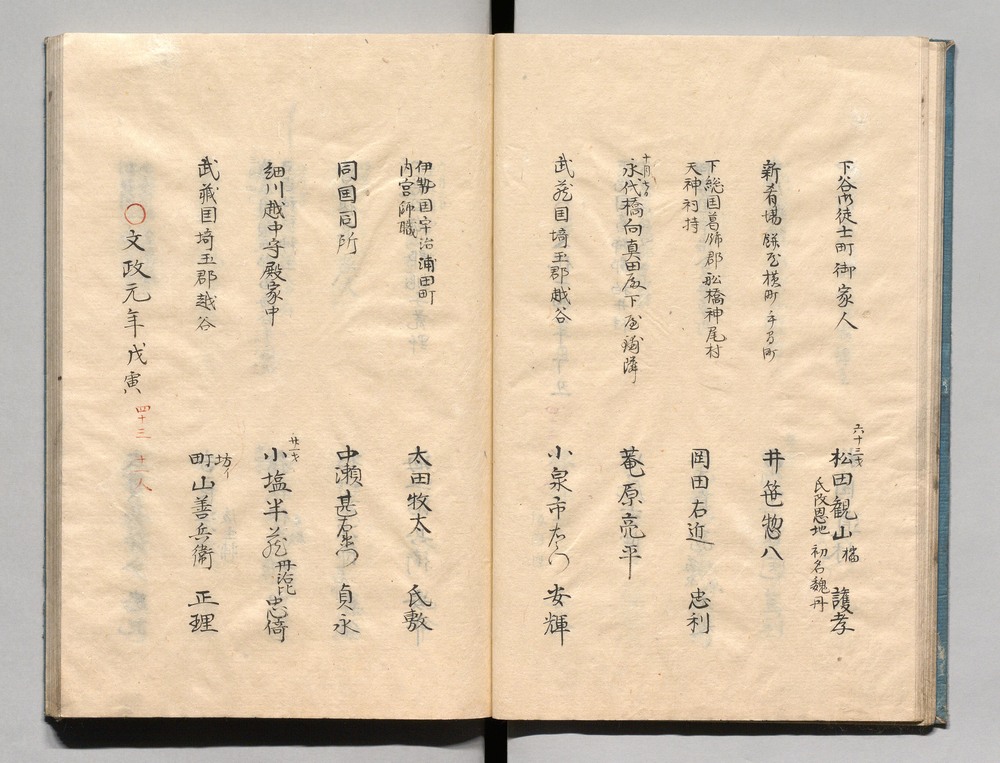 下谷御徒士町御家人
六十三才
松田観山 橘 護孝
氏改恩地 初名魏丹
新肴場 餅屋横町
井笹惣八
下総国葛飾郡舩橋神尾村
天神祠持
岡田右近 忠利
永代橋向真田殿下屋鋪隣
菴原亮平
武蔵国埼玉郡越谷
小泉市右衛門 安輝
伊勢国宇治浦田町
内宮師職
太田牧太 氏敷
同国同所
中瀬甚右衛門 貞永
細川越中守殿家中
廿二才
小塩半蔵 丹治比 忠倚
武蔵国埼玉郡越谷
坊イ
町山善兵衛 正理
〇文政元年戊寅
四十三 十一人